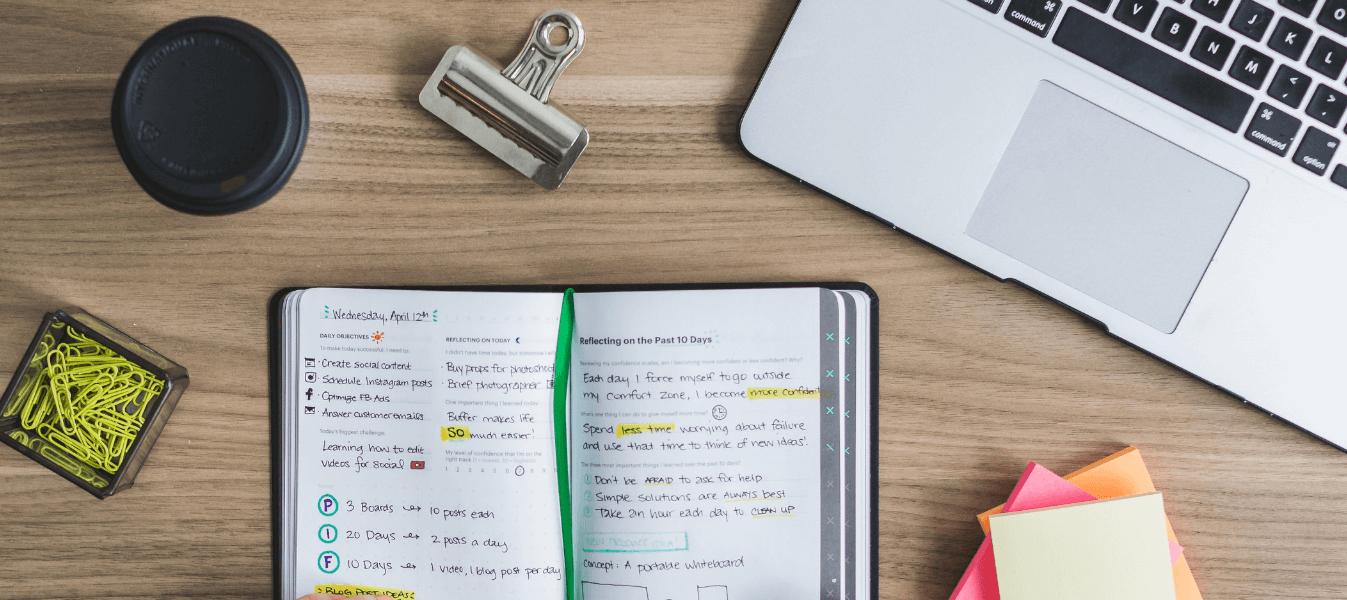 command
V
B
N
M
H
J
K
L
O
<
,
>
.
⌘
command
alt
option
Wednesday, April 12th
DAILY OBJECTIVES
To make today successful, I need to:
· Create social content
· Schedule Instagram posts
· Optimize FB Ads
· Answer customer emails
Today's biggest challenge:
Learning how to edit
videos for social
P 3 Boards → 10 posts each
I 20 Days → 2 posts a day
F 10 Days → 1 video, 1 blog post per day
BLOG POST IDEAS:
REFLECTING ON TODAY
I didn't have time today, but tomorrow I will
· Buy props for photoshoot
· Brief photographer
One important thing I learned today
Buffer makes life
SO much easier!
My level of confidence that I'm on the
Reflecting on the Past 10 Days
Reviewing my confidence scales, am I becoming more confident or less confident? Why?
Each day I force myself to go outside
my comfort zone, I become more confident
What's one thing I can do to give myself more time?
Spend less time worrying about failure
and use that time to think of new ideas!
The three most important things I learned over the past 10 days?
1 Don't be AFRAID to ask for help
2 Simple solutions are ALWAYS best
3 Take an hour each day to CLEAN UP
NEW PRODUCT IDEA!
Concept: A portable whiteboard